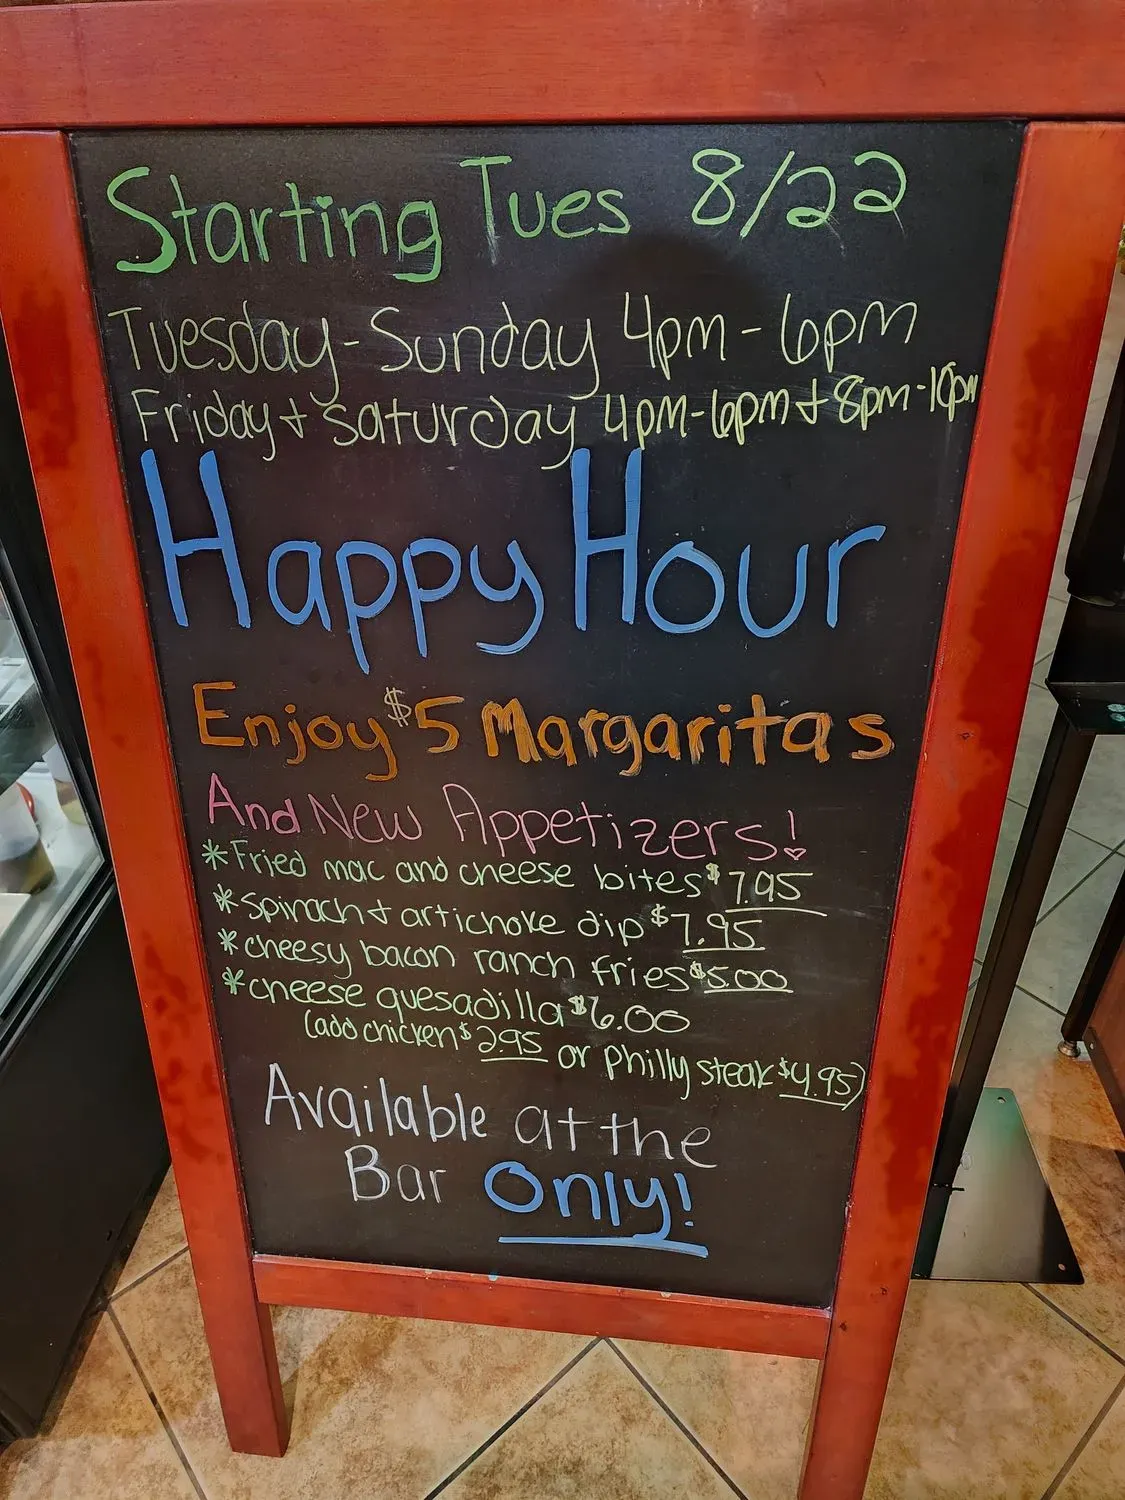 Starting Tues 8/22
Tuesday-Sunday 4pm-6pm
Friday + Saturday 4pm-6pm + 8pm-10pm
Happy Hour
Enjoy $5 Margaritas
And New Appetizers!
*Fried mac and cheese bites $7.95
*spinach + artichoke dip $7.95
*cheesy bacon ranch fries $5.00
*cheese quesadilla $6.00
(add chicken $2.95 or philly steak $4.95)
Available at the
Bar Only!